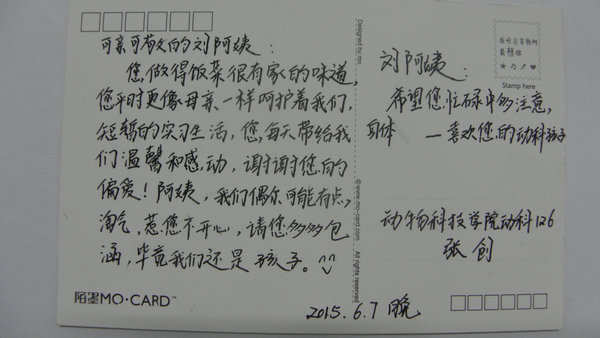 可亲可敬的刘阿姨：
您,做得饭菜很有家的味道,
您平时更像母亲一样呵护着我们,
短暂的实习生活,您,每天带给我
们温馨和感动,谢谢您的
偏爱！阿姨,我们偶尔可能有点,
淘气,惹您不开心,请您多多包
涵,毕竟我们还是孩子。^_^
陌墨MO·CARD™
2015.6.7晚
Designed by mo
©www.mo-card.com
All rights reserved
Stamp here
刘阿姨：
希望您忙碌中多注意,
身体
—喜欢您的动科孩子
动物科技学院动科126
张创